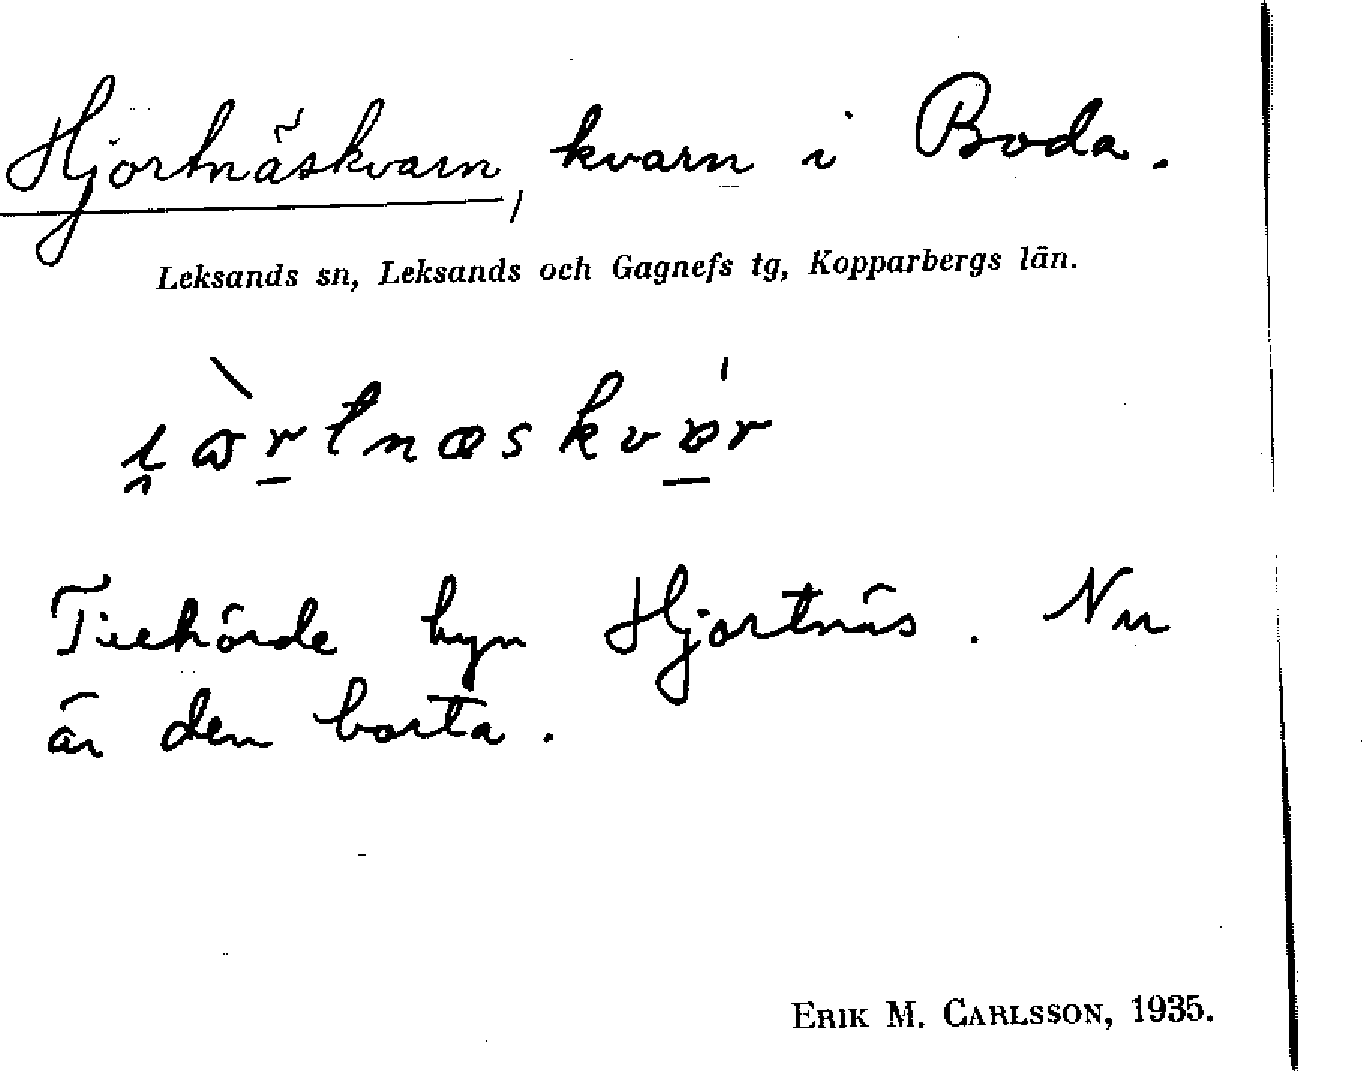 Hjortnäskvarn, kvarn i Boda.
Leksands sn, Leksands och Gagnefs tg, Kopparbergs län.
Tillhörde byn Hjortnäs. Nu
är den borta.
ERIK M. CARLSSON, 1935.